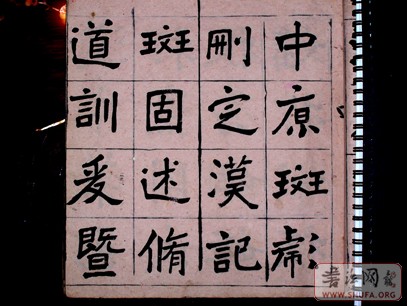 中原斑彪
刪定漢記
斑固述脩
道訓爰暨
WWW.SHUFA.ORG